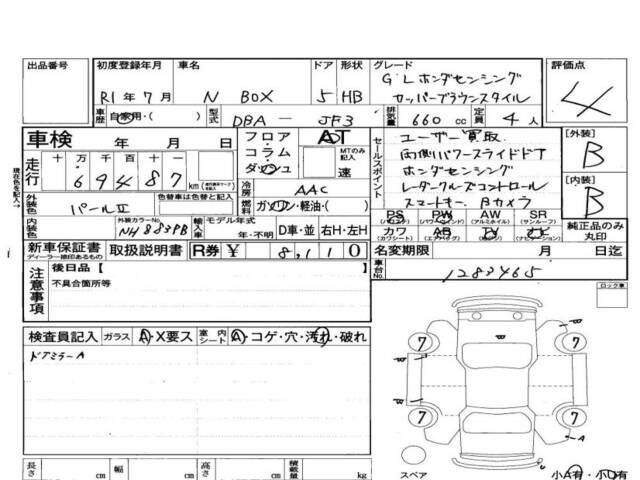 出品番号 初度登録年月 車名 ドア 形状 グレード 評価点
R1年7月 N BOX 5 HB G・Lホンダセンシング
カッパーブラウンスタイル 4
車歴 自家用・( ) 型式 DBA － JF3 排気量 660 cc 定員 4 人
車検 年 月 日 フロア AT セールスポイント ユーザー買取 [外装]
走行 十 万 千 百 十 一 コラム MTのみ記入 両側パワースライドドア B
69487 km ダッシュ 速 ホンダセンシング
現在色を記入→ 外装色 パールⅡ 色替車は色替と記入 冷房 AAC レーダークルーズコントロール [内装]
燃料 ガソリン・軽油・( ) スマートキー Bカメラ B
内装色 外装カラーNo. NH883PB 輸入車 モデル年式 年・不明 D車・並 右H・左H
PS PW AW SR
(パワステ) (パワーウインドウ) (アルミホイル) (サンルーフ)
カワ AB TV ナビ 純正品のみ丸印
(カワシート) (エアバッグ) (テレビ) (ナビゲーション)
新車保証書 取扱説明書 R券 ¥ 8,110 名変期限 月 日迄
ディーラー捺印あるもの
注意事項 後日品【 】 車台No. 1283465
不具合箇所等 ロック車
検査員記入 ガラス A・X要ス 室内シート A・コゲ・穴・汚れ・破れ
ドアミラーA
7 7
W
W
7 7
A
長さ cm 幅 cm 高さ cm 積載量 kg スペア 小A有・小D有